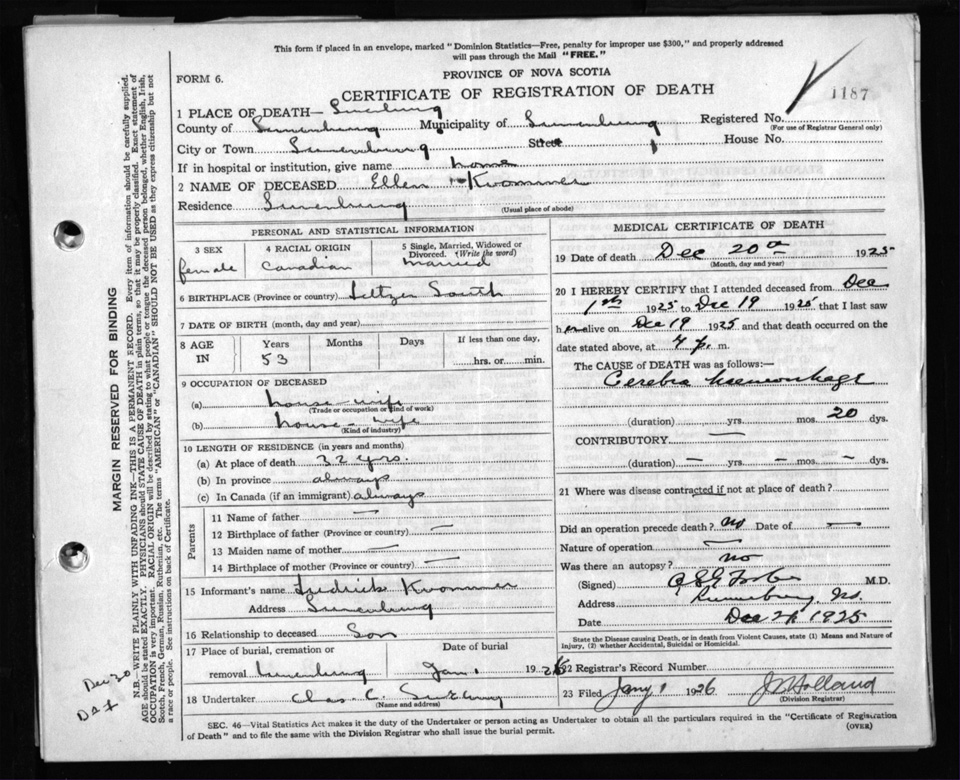 This form if placed in an envelope, marked "Dominion Statistics—Free, penalty for improper use $300," and properly addressed
will pass through the Mail "FREE."
FORM 6.
PROVINCE OF NOVA SCOTIA
CERTIFICATE OF REGISTRATION OF DEATH
1187
1 PLACE OF DEATH— Lunenburg
County of Lunenburg Municipality of Lunenburg Registered No.
(For use of Registrar General only)
City or Town Lunenburg Street House No.
If in hospital or institution, give name home
2 NAME OF DECEASED Ellen Krommer
Residence Lunenburg (Usual place of abode)
PERSONAL AND STATISTICAL INFORMATION
3 SEX 4 RACIAL ORIGIN 5 Single, Married, Widowed or
Divorced. (Write the word)
female Canadian married
6 BIRTHPLACE (Province or country) South
7 DATE OF BIRTH (month, day and year)
8 AGE IN Years Months Days If less than one day,
53 hrs. or min.
9 OCCUPATION OF DECEASED
(a) house-wife
(Trade or occupation or kind of work)
(b) house-wife
(Kind of industry)
10 LENGTH OF RESIDENCE (in years and months)
(a) At place of death 32 yrs.
(b) In province always
(c) In Canada (if an immigrant) always
Parents
11 Name of father —
12 Birthplace of father (Province or country) —
13 Maiden name of mother —
14 Birthplace of mother (Province or country) —
15 Informant's name Fredrick Krommer
Address Lunenburg
16 Relationship to deceased Son
17 Place of burial, cremation or Date of burial
removal Lunenburg Jan 1 1926
18 Undertaker Chas. C.
(Name and address)
MEDICAL CERTIFICATE OF DEATH
19 Date of death Dec 20th 1925
(Month, day and year)
20 I HEREBY CERTIFY that I attended deceased from Dec
1st 1925 to Dec 19 1925 that I last saw
her alive on Dec 19 1925 and that death occurred on
date stated above, at 4 p. m.
The CAUSE OF DEATH was as follows:
Cerebra haemorrhage
(duration) yrs. mos. 20 dys.
CONTRIBUTORY —
(duration) — yrs. — mos. — dys.
21 Where was disease contracted if not at place of death?
—
Did an operation precede death? no Date of —
Nature of operation —
Was there an autopsy? no
(Signed) M.D.
Address Lunenburg, NS.
Date Dec 1925
State the Disease causing Death, or in death from Violent Causes, state (1) Means and Nature of
Injury, (2) whether Accidental, Suicidal or Homicidal.
22 Registrar's Record Number
23 Filed Jany 1 1926 Holland
(Division Registrar)
SEC. 46—Vital Statistics Act makes it the duty of the Undertaker or person acting as Undertaker to obtain all the particulars required in the "Certificate of Registration
of Death" and to file the same with the Division Registrar who shall issue the burial permit. (OVER)
MARGIN RESERVED FOR BINDING
N.B.—WRITE PLAINLY WITH UNFADING INK—THIS IS A PERMANENT RECORD. Every item of information should be carefully supplied.
AGE should be stated EXACTLY. PHYSICIANS should STATE CAUSE OF DEATH in plain terms, so that it may be properly classified. Exact statement of
OCCUPATION is very important. RACIAL ORIGIN will be described by stating to what people or tongue the deceased person belonged, whether English, Irish,
Scotch, French, German, Russian, Ruthenian, etc. The terms "AMERICAN" or "CANADIAN" SHOULD NOT BE USED as they express citizenship but not
a race or people. See instructions on back of Certificate.
Dec 20